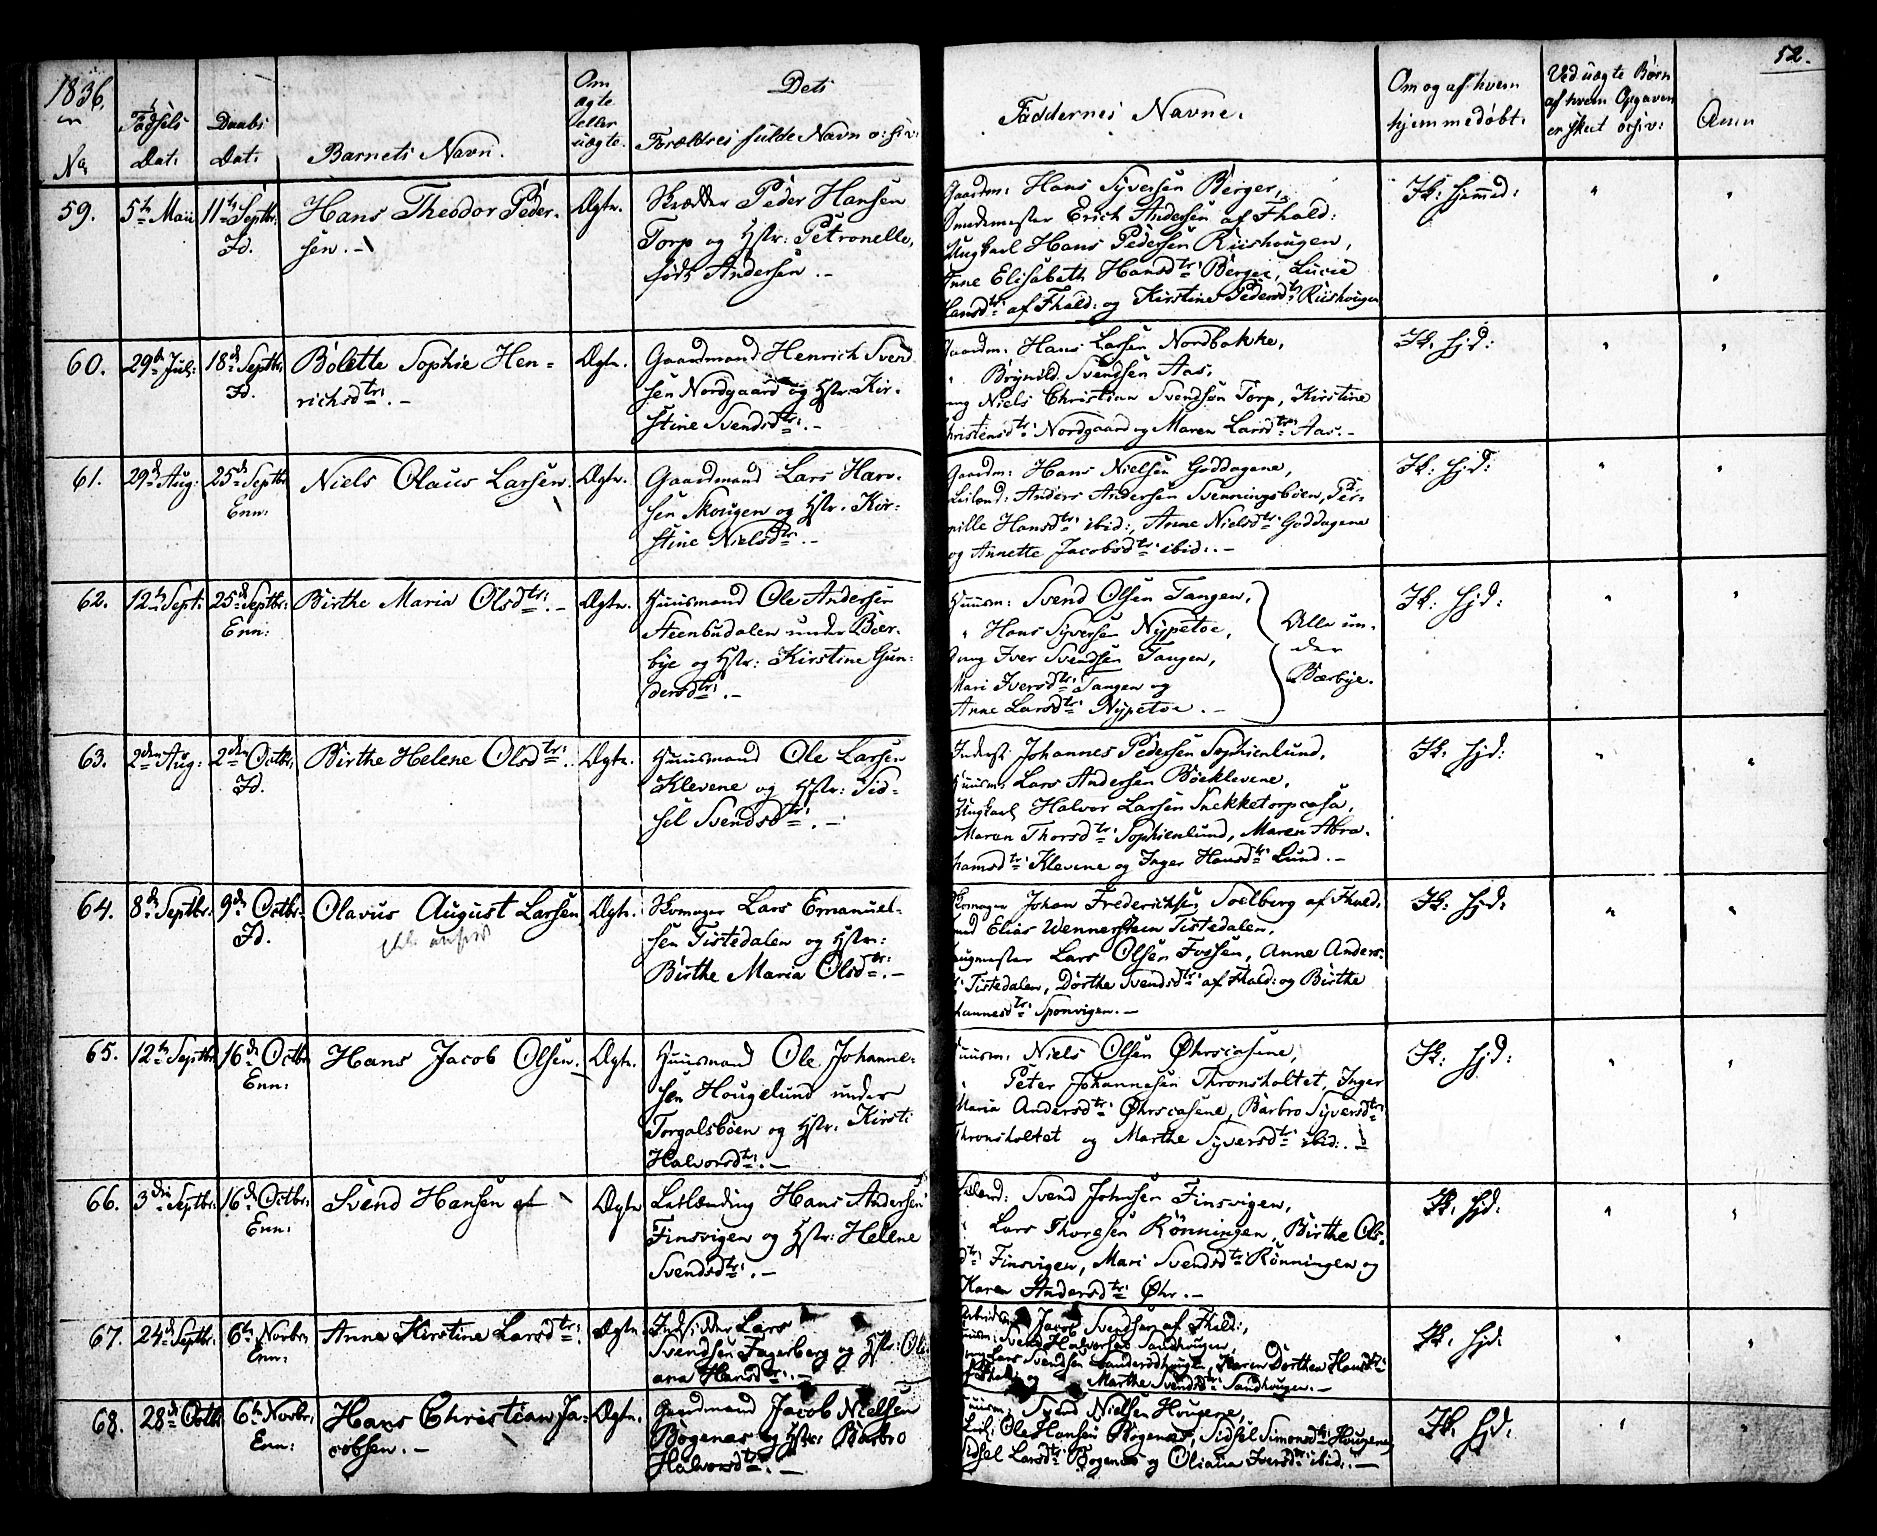 1836.
52.
No
Fødsels Dat:
Daabs Dat:
Barnets Navn.
Om ægte eller uægte.
Dets
Forældres fulde Navn o: s: v:
Faddernes Navne.
Om og af hvem hjemmedøbt.
Ved uægte Børn af hvem Opgaven er skeet o: s: v:
Anm
59. 5te Maii 11te Septbr: Fd. Hans Theodor Peder-
sen. Ægte.
Skrædder Peder Hansen
Torp og Hstr: Petronelle,
født Andersen.
Gaardm: Hans Syversen Berger,
Smedemester Erich Andersen af Fhald:
Ungkarl Hans Pedersen Riishougen,
Anne Elisabeth Hansdtr: Berger, Lucie
Hansdtr: af Fhald: og Kirstine Pedersdtr: Riishougen
Ik: hjemmed: " "
60. 29de Juli: 18de Septbr: Fd. Bolette Sophie Hen-
richsdtr: Ægte.
Gaardmand Henrich Svend-
sen Nordgaard og Hstr: Kir-
stine Svendsdtr:
Gaardm: Hans Larsen Nordbakke,
" Brynild Svendsen Aas,
ung Niels Christian Svendsen Torp, Kirstine
Christensdtr: Nordgaard og Maren Larsdtr: Aas.
Ik. hjd: " "
61. 29de Aug: 25de Septbr Enn: Niels Olaus Larsen. Ægte.
Gaardmand Lars Hav-
sen Skougen og Hstr. Kir-
stine Nielsdtr:
Gaardm: Hans Nielsen Goddagene,
Leilænd: Anders Andersen Svenningsbøen, Per-
nille Hansdtr: ibid:, Anne Nielsdtr: Goddagene
og Annette Jacobsdtr: ibid:.
Ik: hjd: " "
62. 12te Sept: 25de Septbr: Enn: Birthe Maria Olsdtr: Ægte.
Huusmand Ole Andersen
Steenbudalen under Bær-
bye og Hstr: Kirstine Gun-
dersdtr:
Huusm: Svend Olsen Tangen,
" Hans Syversen Nypetoe,
Ung Iver Svendsen Tangen,
Mari Iversdtr: Tangen og
Anne Larsdtr: Nypetoe.
Alle un-
der
Bærbye.
Ik: hjd: " "
63. 2den Aug: 2den Octbr: Fd. Birthe Helene Olsdtr: Ægte.
Huusmand Ole Larsen
Klevene og Hstr: Sid-
sel Svendsdtr:
Inderst: Johannes Pedersen Sophienlund,
Huusm: Lars Andersen Bøeklevene,
Ungkarl Halvor Larsen Snekketorpcasa,
Maren Thorsdtr: Sophienlund, Maren Abra-
hamsdtr: Klevene og Inger Hansdtr: Lund.
Ik. hjd: " "
64. 8de Septbr. 9de Octbr. Fd. Olavus August Larsen Ægte.
Skomager Lars Emanuel-
sen Tistedalen og Hstr:
Birthe Maria Olsdtr:
Skomager Johan Frederichsen Soelberg af Fhald:
Elias Wennerstrøm Tistedalen,
Lars Olsen Fossen, Anne Anders-
Tistedalen, Dorthe Svendsdtr: af Fhald: og Birthe
Johannesdtr: Sponvigen.
Ik: hjd: " "
65. 12te Septbr 16de Octbr Enn: Hans Jacob Olsen. Ægte.
Huusmand Ole Johanne-
sen Hougelund under
Torgalsbøen og Hstr: Kirsti
Halvorsdtr:
Huusm: Niels Olsen Øhrscasene,
" Peter Johannesen Thronsholtet, Inger
Maria Andersdtr: Øhrscasene, Barbro Syversdtr:
Thronsholtet og Marthe Syversdtr: ibid:.
Ik: hjd: " "
66. 3die Septbr: 16de Octbr: Enn: Svend Hansen Ægte
Leilænding Hans Andersen
Finsvigen og Hstr: Helene
Svendsdtr:
Leilænd: Svend Johnsen Finsvigen,
" Lars Thoresen Rønningen, Birthe Ols-
dtr: Finsvigen, Mari Svendsdtr: Rønningen og
Karen Andersdtr: Øhr.
Ik. hjd: " "
67. 24de Septbr: 6te Novbr Enn: Anne Kirstine Larsdtr: Ægte
Indsidder Lars
Svendsen Fagerberg og Hstr: Oli-
ana Hansdtr:
Jacob Svendsen af Fhald:,
Huusm: Svend Halvorsen Sandhougen,
Ung Lars Svendsen Sandhougen, Karen Dorthea Hansdtr:
Fhald: og Marthe Svendsdtr: Sandhougen.
Ik. hjd: " "
68. 28de Octbr 6te Novbr. Enn: Hans Christian Ja-
cobsen. Ægte.
Gaardmand Jacob Nielsen
Bøgenæs og Hstr: Barbro
Halvorsdtr:
Huusm: Svend Nielsen Hougene,
Leil: Ole Hansen Bøgenæs, Sidsel Simonsdtr: Hougene
Sidsel Larsdtr: Bøgenæs og Oliana Iversdtr: ibid:.
Ik: hjd: " "